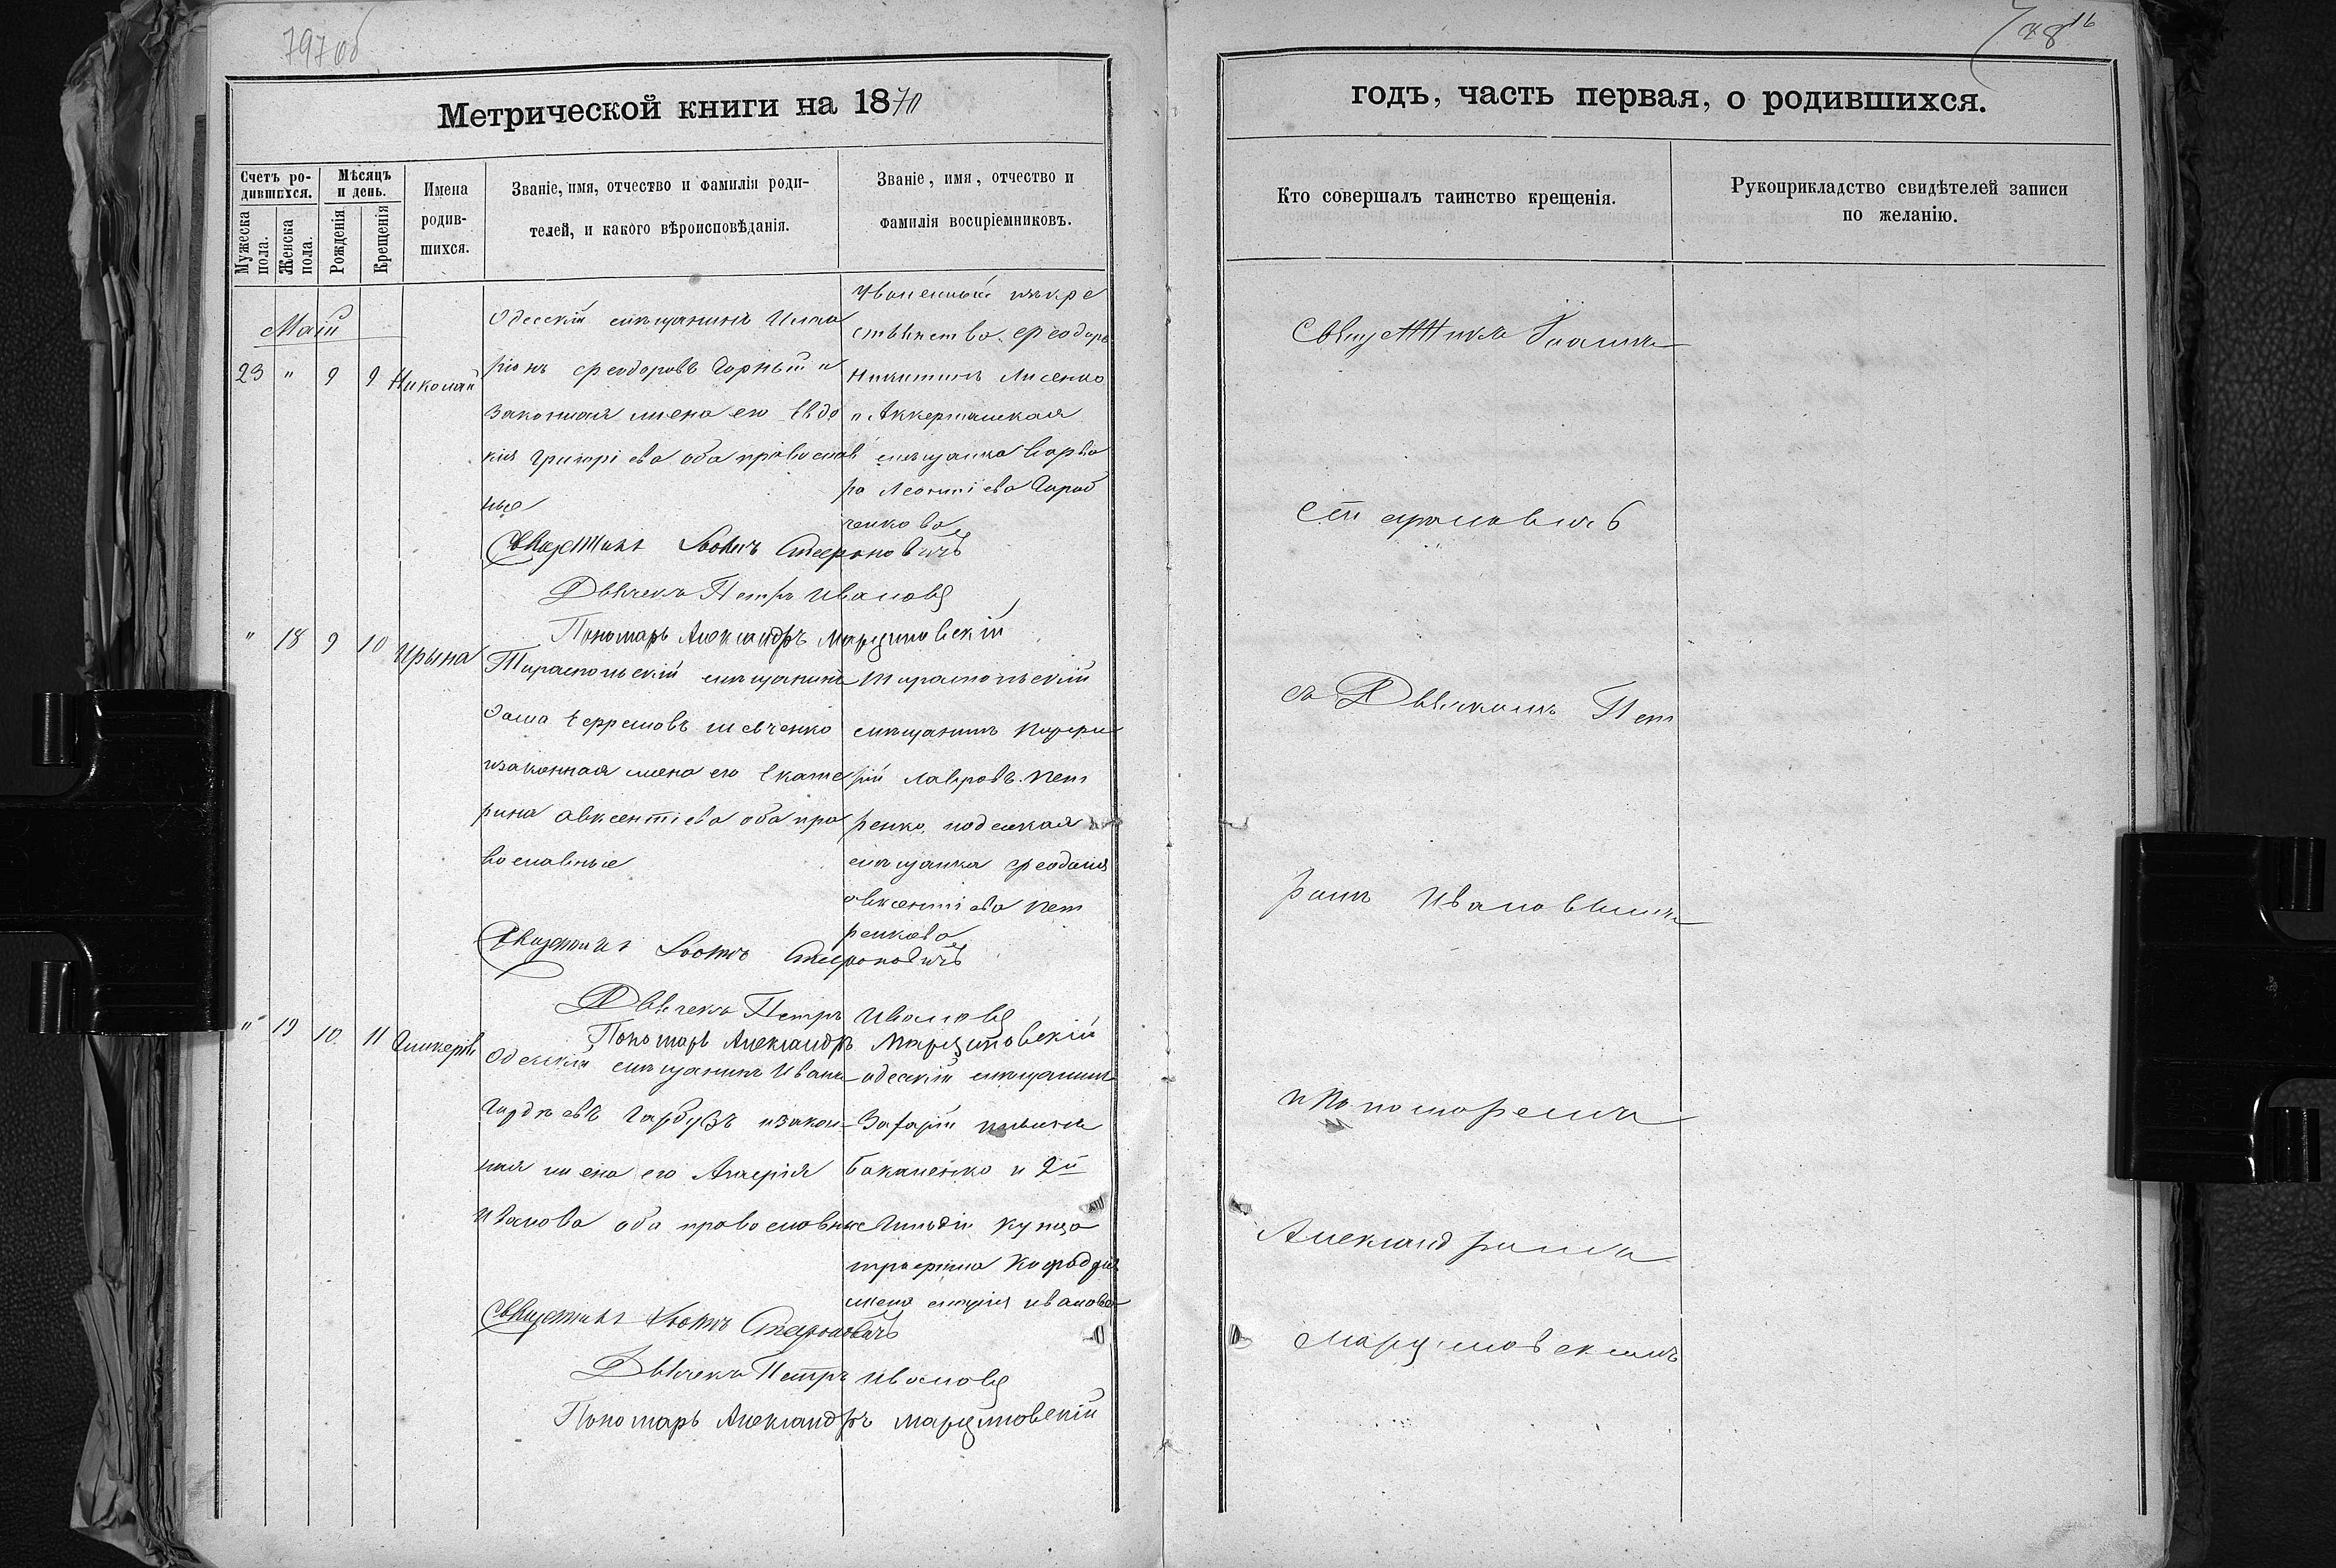 797 об
Метрической книги на 1870
Счетъ родившихся.
Мужеска пола.
Женска пола.
Мѣсяцъ и день.
Рожденія
Крещенія
Имена
родив-
шихся.
Званіе, имя, отчество и фамилія роди-
телей, и какого вѣроисповѣданія.
Званіе, имя, отчество и
фамилія воспріемниковъ.
Май
23 " 9 9 Николай
Одесскій мѣщанинъ Ила
ріонъ Ѳеодоровъ Чорный и
законная жена его Евдо
кия Григоріева оба православ
ные
Уволенный
Ѳеодоръ
Никитинъ Лисенко
и Аккерманская
мѣщанка Варва
ра Леонтіева
Священникъ Іоаннъ Стефановичъ
Дьячекъ Петръ Ивановъ
Пономарь Александръ Марциновскій
" 18 9 10 Ирына
Тираспольскій мѣщанинъ
Ѳома Ефремовъ Шевченко
и законная жена его Екате
рина Авксентіева оба пра
вославные
Тираспольскій
мѣщанинъ
Лавровъ Пет
ренко и одесская
мѣщанка Ѳеодосия
Авксентіева Пет
ренкова
Священникъ Іоаннъ Стефановичъ
Дьячекъ Петръ Ивановъ
Пономарь Александръ Марциновскій
" 19 10 11 Гликерія
Одесскій мѣщанинъ Иванъ
Гордѣевъ Гарбузъ и закон
ная жена его Агафія
Иванова оба православные
одесскій мѣщанинъ
Захарій
Баканенко и 2й
Гильдіи купца
жена Марія Иванова
Священникъ Іоаннъ Стефановичъ
Дьячекъ Петръ Ивановъ
Пономарь Александръ Марциновскій
годъ, часть первая, о родившихся.
Кто совершалъ таинство крещенія.
Рукоприкладство свидѣтелей записи
по желанію.
Священникъ Іоаннъ
Стефановичъ
съ Дьячкомъ Пет
ромъ Ивановымъ
и Пономаремъ
Александромъ
Марциновскимъ